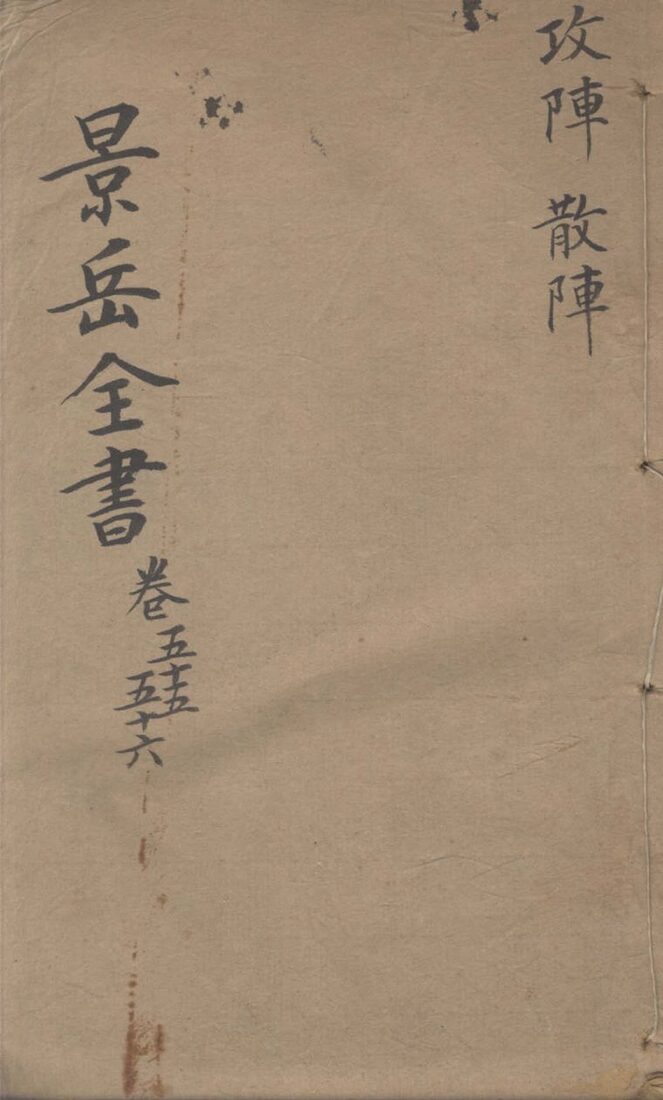 攻陣 散陣
景岳全書
卷五十五
五十六